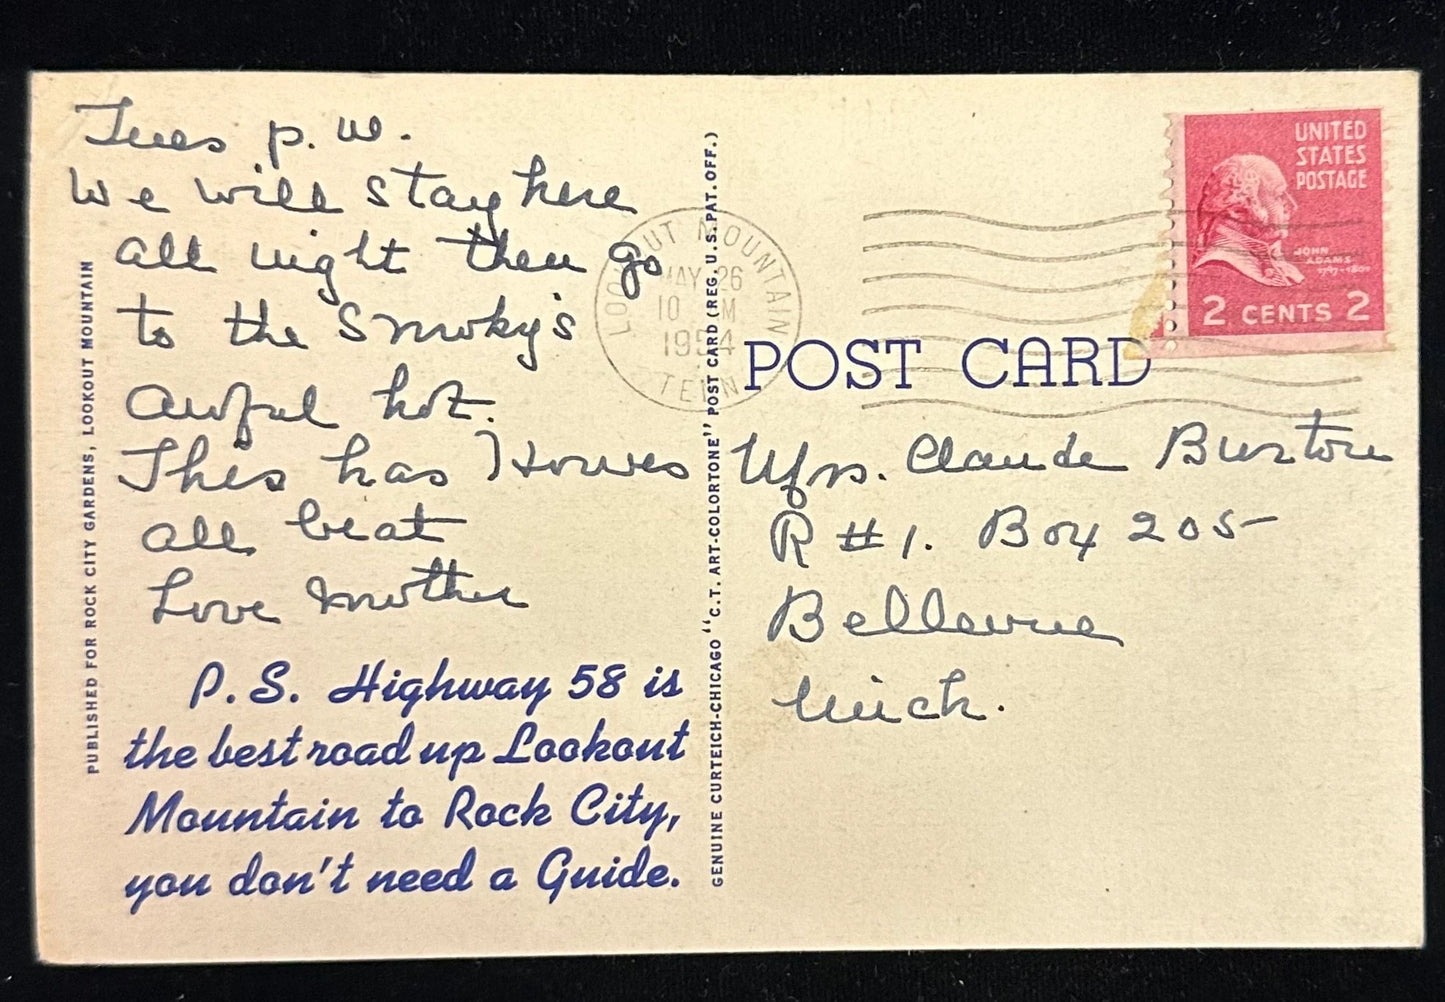 Tues p.m.
We will stay here
all night then go
to the Smoky's
Awful hot.
This has Howes
all beat
Love Mother
P.S. Highway 58 is
the best road up Lookout
Mountain to Rock City,
you don't need a Guide.
PUBLISHED FOR ROCK CITY GARDENS, LOOKOUT MOUNTAIN
GENUINE CURTEICH-CHICAGO "C.T. ART-COLORTONE" POST CARD (REG. U.S. PAT. OFF.)
LOOKOUT MOUNTAIN
MAY 26
10 M
1954
TENN
UNITED
STATES
POSTAGE
JOHN
ADAMS
1797-1801
2 CENTS 2
POST CARD
Mrs. Claude Burton
R #1. Box 205
Bellevue
Mich.